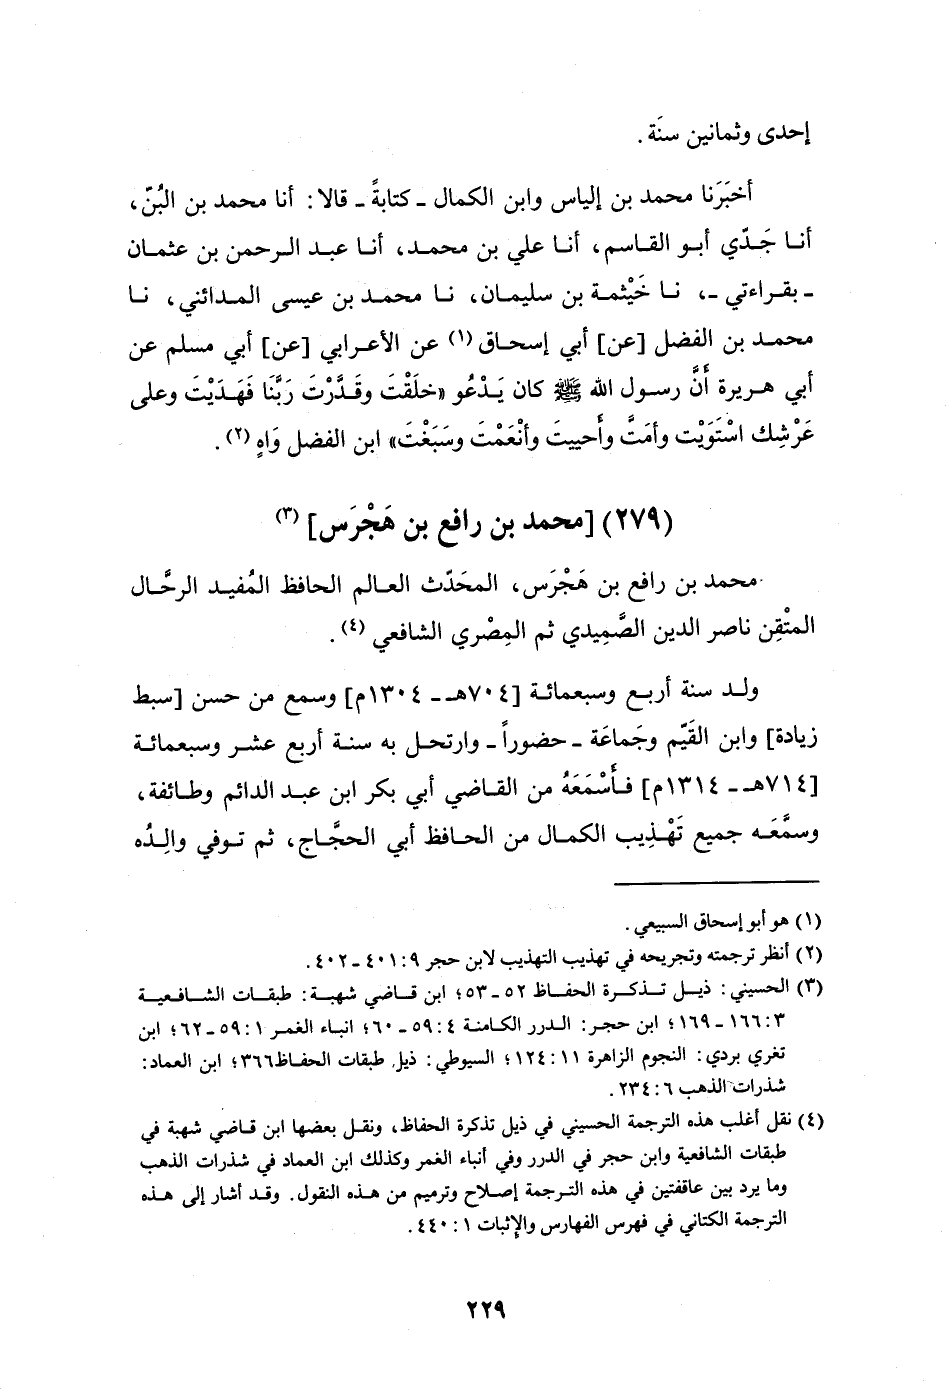 إحدى وثمانين سنَة .
أخبَرَنا محمد بن إلياس وابن الكمال ـ كتابةً ـ قالا : أنا محمد بن البُنّ،
أنـا جَـدّي أبـو القـاسم، أنـا علي بن محمـد، أنـا عبـد الـرحمن بن عثمـان
ـ بقـراءتي ـ، نـا خَيْثمـة بن سليمـان، نـا محمـد بن عيسى المـدائني، نـا
محمـد بن الفضل [عن] أبي إسحـاق (١) عن الأعـرابي [عن] أبي مسلم عن
أبي هـريرة أنَّ رسـول الله ﷺ كان يَـدْعُو «خلَقْتَ وقَـدَّرْتَ رَبَّنَا فَهَـدَيْتَ وعلى
عَرْشِك اسْتَوَيْت وأمَتَّ وأحييتَ وأنْعَمْتَ وسَبَغْتَ» ابن الفضل وَاهٍ (٢) .
(٢٧٩) [محمد بن رافع بن هَجْرَس] (٣)
محمد بن رافع بن هَجْرَس، المحَدّث العـالم الحافظ المُفيـد الرحَّـال
المتْقِن ناصر الدين الصَّمِيدي ثم المِصْري الشافعي (٤) .
ولـد سنة أربـع وسبعمائـة [٧٠٤هـ ـ ١٣٠٤م] وسمع من حسن [سبط
زيادة] وابن القَيّم وجَماعَة ـ حضوراً ـ وارتحـل به سنـة أربع عشـر وسبعمائـة
[٧١٤هـ ـ ١٣١٤م] فـأسْمَعَهُ من القـاضي أبي بكر ابن عبـد الدائم وطـائفة،
وسمَّعَـه جميع تَهْـذِيب الكمـال من الحـافظ أبي الحجَّـاج، ثم تـوفي والِدُه
(١) هو أبو إسحاق السبيعي .
(٢) أنظر ترجمته وتجريحه في تهذيب التهذيب لابن حجر ٩ : ٤٠١ ـ ٤٠٢ .
(٣) الحسيني : ذيـل تـذكـرة الحفـاظ ٥٢ ـ ٥٣؛ ابن قـاضي شهبـة : طبقـات الشـافعيـة
٣ : ١٦٦ ـ ١٦٩؛ ابن حجـر : الـدرر الكـامنـة ٤ : ٥٩ ـ ٦٠؛ انبـاء الغمـر ١ : ٥٩ ـ ٦٢؛ ابن
تغري بردي : النجوم الزاهرة ١١ : ١٢٤؛ السيوطي : ذيل طبقات الحفـاظ٣٦٦؛ ابن العماد :
شذرات الذهب ٦ : ٢٣٤ .
(٤) نقل أغلب هذه الترجمة الحسيني في ذيل تذكرة الحفاظ، ونقـل بعضهـا ابن قـاضي شهبة في
طبقات الشافعية وابن حجر في الدرر وفي أنباء الغمر وكذلك ابن العماد في شذرات الذهب
وما يرد بين عاقفتين في هذه التـرجمة إصلاح وترميم من هـذه النقول. وقـد أشار إلى هـذه
الترجمة الكتاني في فهرس الفهارس والإثبات ١ : ٤٤٠ .
٢٢٩